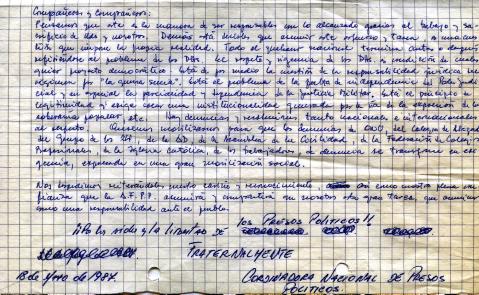 Compañeras y compañeros:
Pensamos que esta es la manera de ser responsables con lo alcanzado gracias al trabajo y sa-
crificio de Uds y nosotros. Demás está decirles que asumir este esfuerzo y tarea, es una cues-
tión que impone la propia realidad. Todo el quehacer nacional termina antes o después
refiriéndose al problema de los DDs. HH. El respeto y vigencia de los DDs. es condición de cual-
quier proyecto democrático. Está de por medio la cuestión de la responsabilidad jurídica
por "la guerra sucia". Está el problema de la falta de independencia del Poder Judi-
cial y en especial la parcialidad y dependencia de la Justicia Militar. Está el principio de
legitimidad que exige crear una institucionalidad generada por la vía de la expresión de la
soberanía popular, etc. Hay denuncias y resoluciones tanto nacionales e internacionales
al respecto. Queremos movilizarnos para que las denuncias de ONU, del Colegio de Abogados
del Grupo de los 24, de la AD, de la Asamblea de la Civilidad, de la Federación de Colegios
Profesionales, de la Iglesia Católica, de los trabajadores, de denuncia se transforme en exi-
gencia, expresada en una gran movilización social.
Nos despedimos reiterándoles mucho cariño y reconocimiento, así como nuestra plena con-
fianza que la A.F.P.P. asumirá y compartirá con nosotros esta gran tarea, que asumimos
como una responsabilidad ante el pueblo.
¡¡Por la vida y la libertad de los PRESOS POLITICOS!!
FRATERNALMENTE
18 de Mayo de 1987.
COORDINADORA NACIONAL DE PRESOS
POLITICOS.